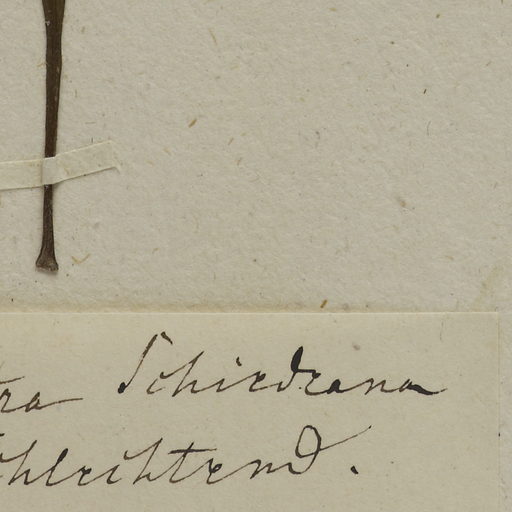 tra Schiedeana
chlechtend.